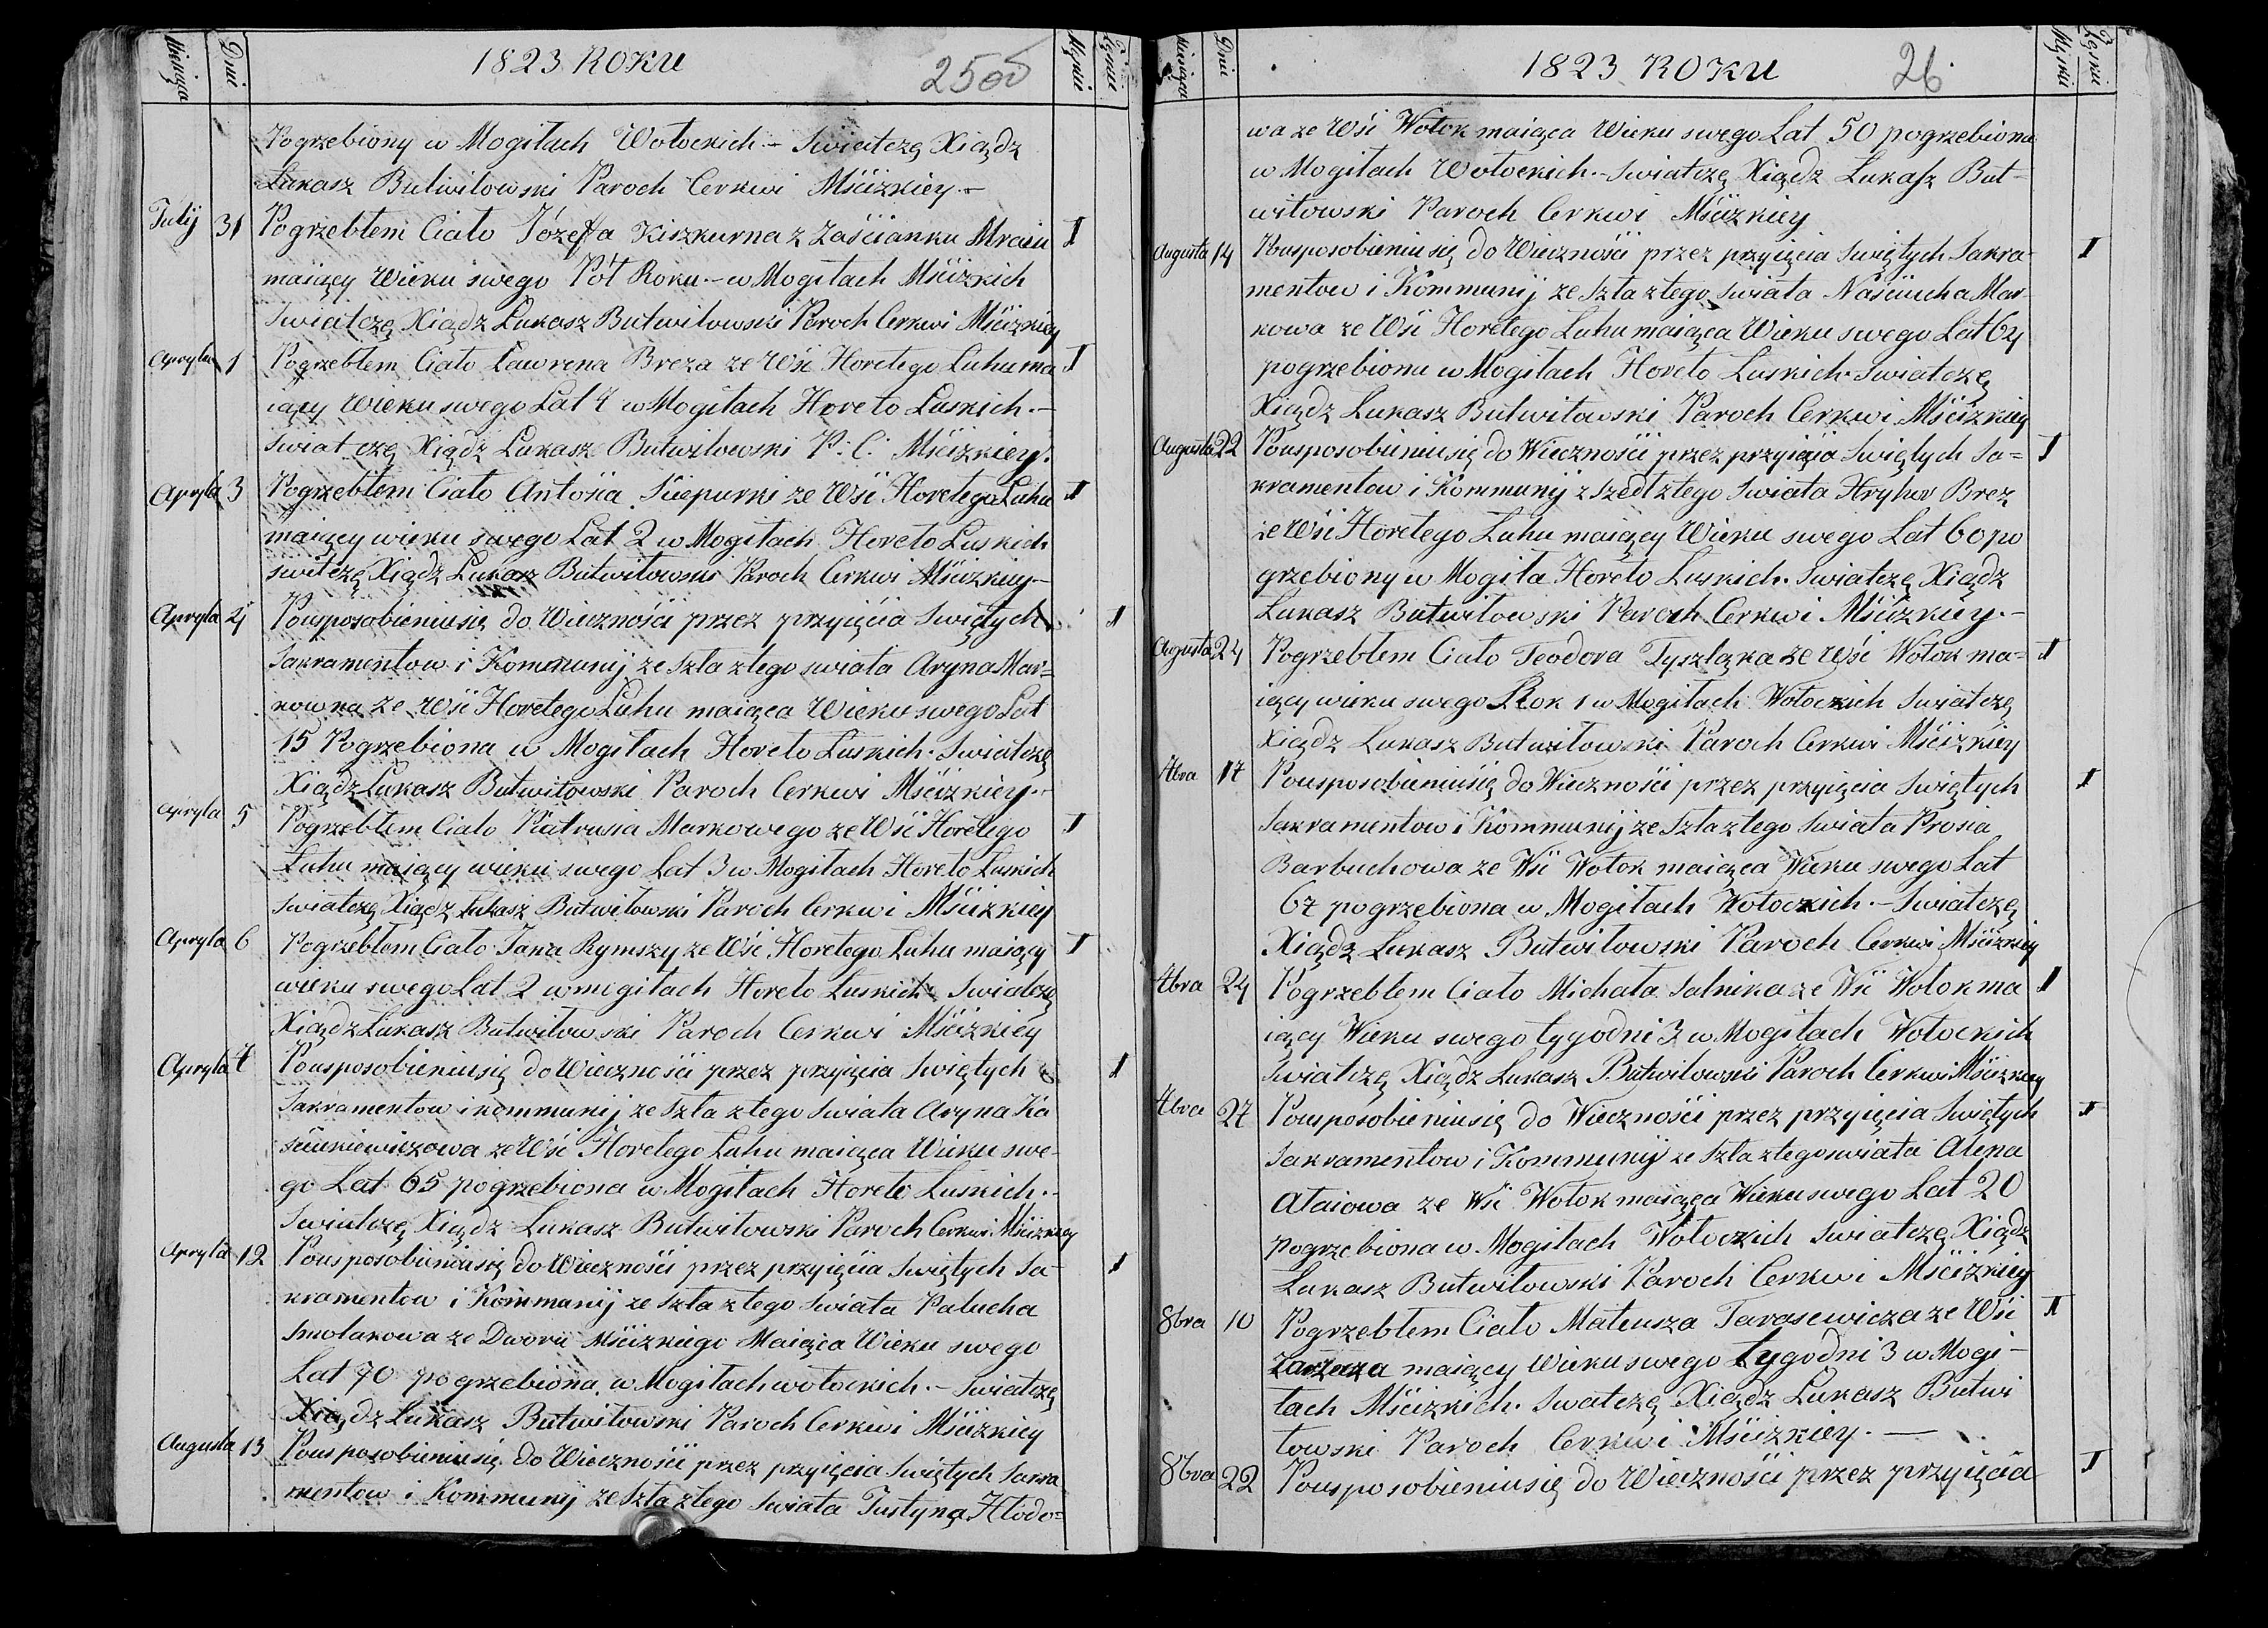 Miesiąca
Dni
1823 ROKU
25
Męskie
Żeńskie
Pogrzebiony w Mogiłach Wołockich. – Swiatczę Xiądz
Łukasz Butwiłowski Paroch Cerkwi Mścizkiey. –
Julij 31 Pogrzebłem Ciało Józeffa Kiszkurna z Zaścianku Mraiu I
maiący Wieku swego Pół Roku. – w Mogiłach Mścizkich
Swiatczę Xiądz Łukasz Butwiłowski Paroch Cerkwi Mścizkiey
Apryla 1 Pogrzebłem Ciało Ławrena Breza ze Wśi Horełego Łuhu ma I
iący Wieku swego Lat 4 w Mogiłach Horeło Łuskich. –
Swiatczę Xiądz Łukasz Butwiłowski P: C: Mścizkiey.
Apryla 3 Pogrzebłem Ciało Antosia Sciepurki ze Wśi Horełego Łuhu I
maiący wieku swego Lat 2 w Mogiłach Horeło Łuskich
switczę Xiądz Łukasz Butwiłowski Paroch Cerkwi Mścizkiey –
Apryla 4 Pousposobieniusię do Wieczności przez przyięcia Swiętych I
Sakramentow i Kommunij ze szła ztego swiata Aryna Mar=
kowna ze Wśi Horełego Łuhu maiąca Wieku swego Lat
15 Pogrzebiona w Mogiłach Horeło Łuskich. Swiatczę
Xiądz Łukasz Butwiłowski Paroch Cerkwi Mścizkiey. –
Apryla 5 Pogrzebłem Ciało Piatrusia Markowego ze Wśi Horełego I
Łuhu maiący wieku swego Lat 3 w Mogiłach Horeło Łuskich
Swiatczę Xiądz Łukasz Butwiłowski Paroch Cerkwi Mścizkiey
Apryla 6 Pogrzebłem Ciało Jana Rymszy ze Wśi Horełego Łuhu maiący I
wieku swego Lat 2 w mogiłach Horeło Łuskich Swiatczę
Xiądz Łukasz Butwiłowski Paroch Cerkwi Mścizkiey
Apryla 7 Pousposobieniusię do Wieczności przez przyięcia Swiętych I
Sakramentow i kommunij ze szła ztego swiata Aryna Ka
sciukiewiczowa ze Wśi Horełego Łuhu maiąca Wieku swe-
go Lat 65 pogrzebiona w Mogiłach Horeło Łuskich. –
Swiatczę Xiądz Łukasz Butwiłowski Paroch Cerkwi Mścizkiey
Apryla 12 Pousposobieniusię do Wieczności przez przyięcia Swiętych Sa- I
kramentow i Kommunij ze szła ztego Swiata Palucha
Smolakowa ze Dworu Mścizkiego Maiąca Wieku swego
Lat 70 pogrzebiona w Mogiłach wołockich. – Swiatczę
Xiądz Łukasz Butwiłowski Paroch Cerkwi Mścizkiey
Augusta 13 Pousposobieniusię do Wieczności przez przyięcia Swiętych Sakra
mentow i Kommunij ze Szła ztego Swiata Justyna Hłodo=
Miesiąca
Dni
1823 ROKU
26
Męskie
Żęskie
wa ze Wśi Wołok maiąca Wieku swego Lat 50 pogrzebiona
w Mogiłach Wołockich. – Swiatczę Xiądz Łukasz But-
wiłowski Paroch Cerkwi Mścizkiey
Augusta 14 Pousposobieniusię do Wieczności przez przyięcia Swiętych Sakra- I
mentow i Kommunij ze szła ztego swiata Nasciucha Mar-
kowa ze Wśi Horełego Łuhu maiąca Wieku swego Lat 64
pogrzebiona w Mogiłach Horeło Łuskich. Swiatczę
Xiądz Łukasz Butwiłowski Paroch Cerkwi Mścizkiey
Augusta 22 Pousposobieniusię do Wieczności przez przyięcia Swiętych Sa= I
kramentow i Kommunij z szedł ztego Swiata Hryhor Brez
ze Wśi Horełego Łuhu maiący Wieku swego Lat 60 po
grzebiony w Mogiła Horeło Łuskich. Swiatczę Xiądz
Łukasz Butwiłowski Paroch Cerkwi Mścizkiey. –
Augusta 24 Pogrzebłem Ciało Teodora Tyszląka ze Wśi Wołok ma= I
iący wieku swego Rok 1 w Mogiłach Wołockich Swiatczę
Xiądz Łukasz Butwiłowski Paroch Cerkwi Mścizkiey
7bra 17 Pousposobieniusię do Wieczności przez przyięcia Swiętych I
Sakramentow i Kommunij ze szła ztego Swiata Prosia
Barbuchowa ze Wśi Wołok maiąca Wieku swego Lat
67 pogrzebiona w Mogiłach Wołockich. – Swiatczę
Xiądz Łukasz Butwiłowski Paroch Cerkwi Mścizkiey
7bra 24 Pogrzebłem Ciało Michała Salnika ze Wśi Wołok ma I
iący Wieku swego tygodni 3 w Mogiłach Wołockich
Swiatczę Xiądz Łukasz Butwiłowski Paroch Cerkwi Mścizkiey
7bra 27 Pousposobieniusię do Wieczności przez przyięcia Swiętych I
Sakramentow i Kommunij ze szła ztego swiata Alena
Ataiowa ze Wśi Wołok maiąca Wieku swego Lat 20
pogrzebiona w Mogiłach Wołockich Swiatczę Xiądz
Łukasz Butwiłowski Paroch Cerkwi Mścizkiey
8bra 10 Pogrzebłem Ciało Mateusza Tarasewicza ze Wśi I
maiący Wieku swego tygodni 3 w Mogi-
łach Mścizkich. Swatczę Xiądz Łukasz Butwi
łowski Paroch Cerkwi Mścizkiey. –
8bra 22 Pousposobieniusię do Wieczności przez przyięcia I